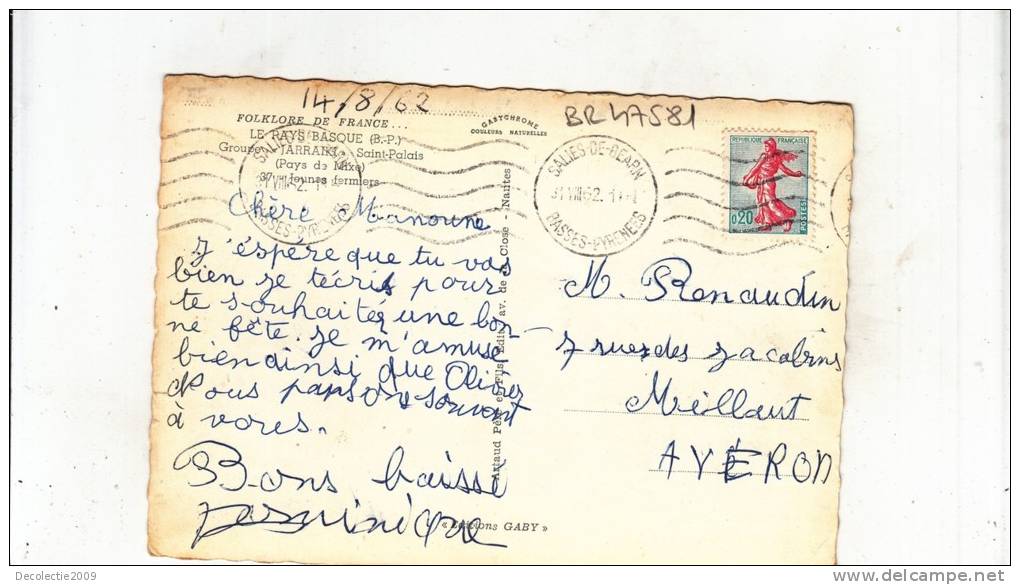 14/8/62
BR47581
FOLKLORE DE FRANCE...
LE PAYS BASQUE (B.-P.)
Groupe JARRAIKI Saint-Palais
(Pays de Mixe)
37 Jeunes fermiers
GABYCHROME
COULEURS NATURELLES
SALIES-DE-BEARN
31 VIII 62
BASSES-PYRENEES
REPUBLIQUE FRANÇAISE
0,20
POSTES
Chère Manoune
J'éspére que tu vas
bien je t'écris pour
te souhaiter une bon-
ne fête. Je m'amuse
bien ainsi que Olivier
Nous pansons souvent
à vores.
Bons baisse
Dominique
M. Renaudin
7 rue des Jacobins
Millaut
AVÉRON
Artaud Père et Fils Edit. av. de la Close - Nantes
« Editions GABY »
Decolectie2009